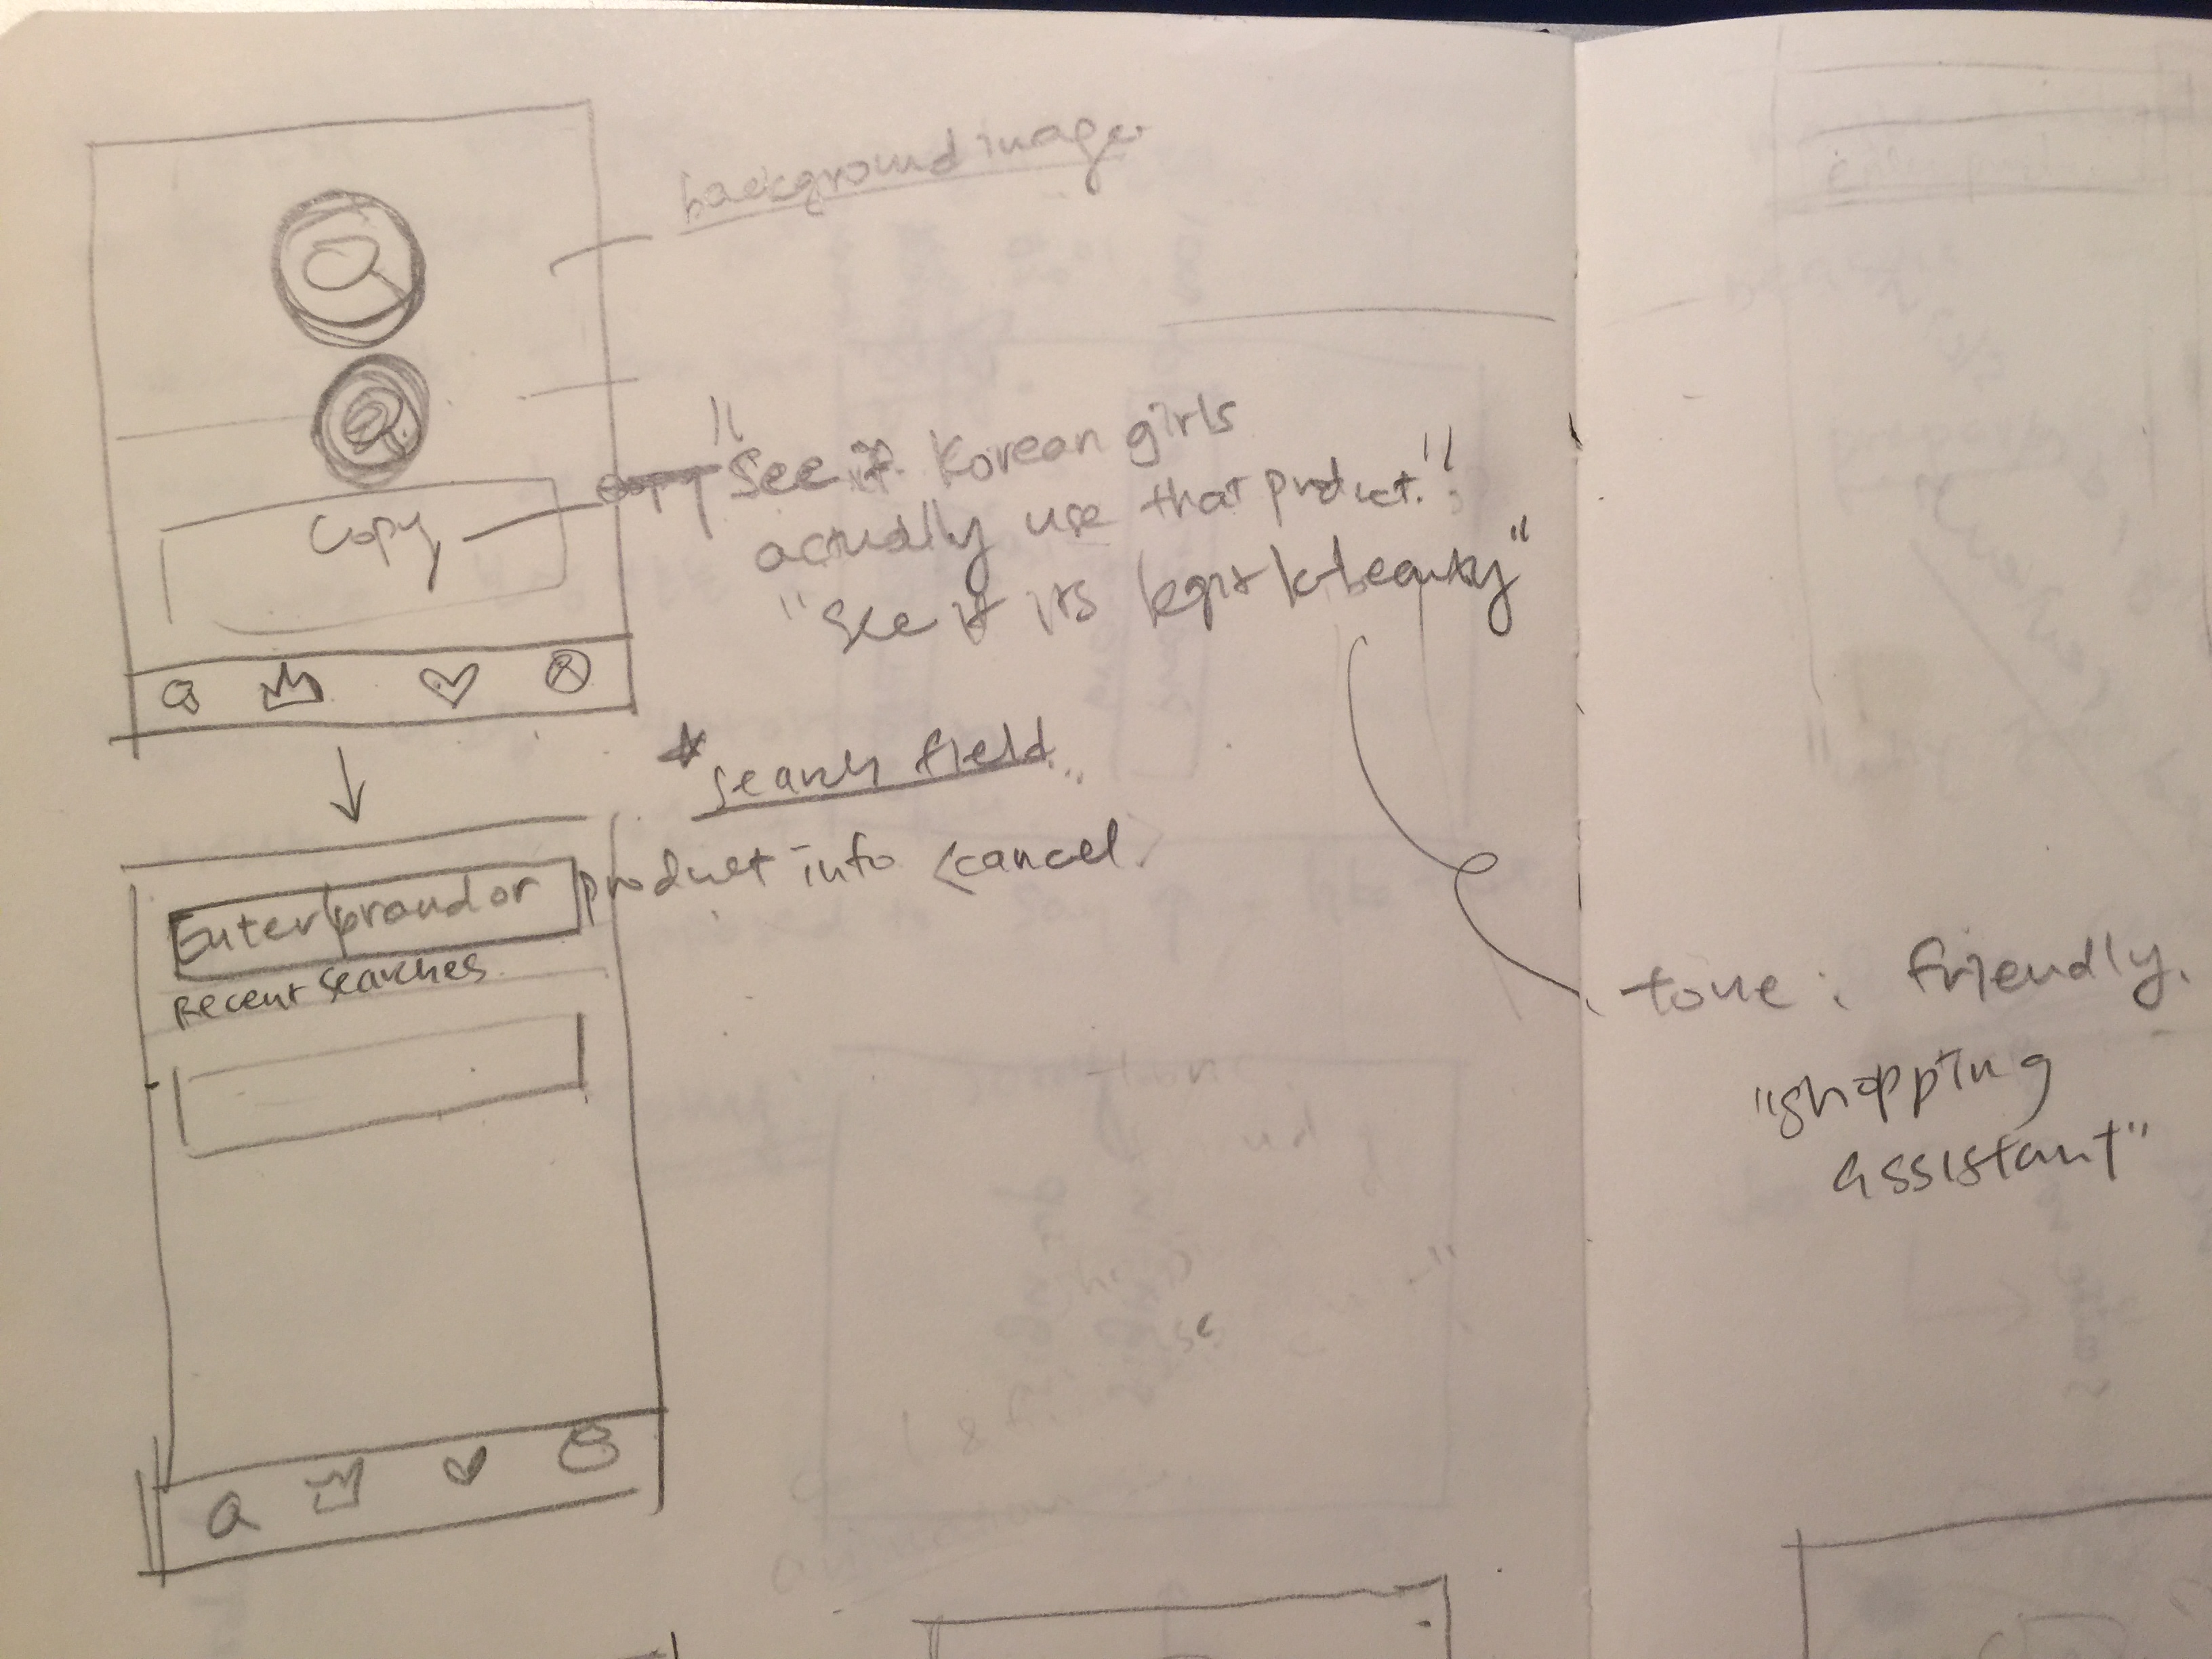 background image
Copy
"See if Korean girls
actually use that product."
"See if its legit k-beauty"
* search field
Enter brand or product info <cancel.
Recent searches
tone: friendly.
"shopping
assistant"